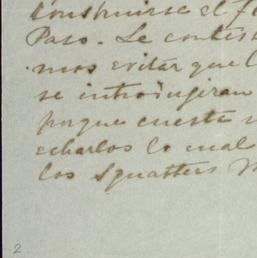 construirse el f
Paso. Le contes
mos evitar que l
se introdugeran
porque cuesta
echarlos lo cual
los Squatters
2